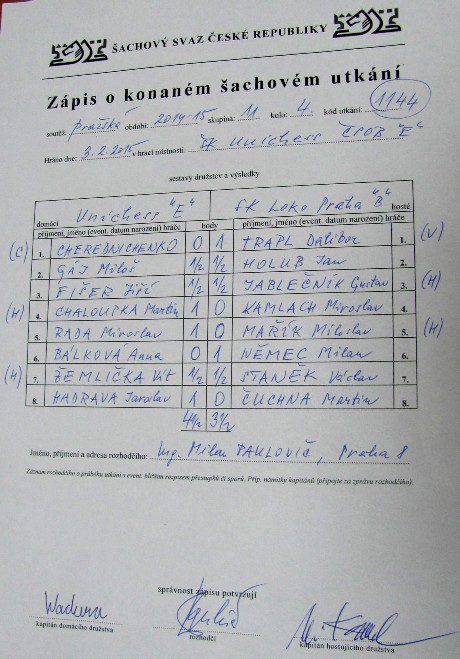 ŠACHOVÝ SVAZ ČESKÉ REPUBLIKY
Zápis o konaném šachovém utkání
soutěž: Pražská období: 2014-15 skupina: 11 kolo: 4. kód utkání: 1144
Hráno dne: 3.2.2015 v hrací místnosti: ŠK Unichess ČPOB "E"
sestavy družstev a výsledky
domácí Unichess "E" SK Loko Praha "B" hosté
příjmení, jméno (event. datum narození) hráče body příjmení, jméno (event. datum narození) hráče
(C) 1. CHEREDNICHENKO 0 1 TRAPL Dalibor 1. (V)
2. GÁJ Miloš 1/2 1/2 HOLUB Jan 2.
3. FIŠER Jiří 1/2 1/2 JABLEČNÍK Gustav 3. (H)
(H) 4. CHALOUPKA Martin 1 0 KAMLACH Miroslav 4.
5. RADA Miroslav 1 0 MAŘÍK Miloslav 5. (H)
6. BÁLKOVÁ Anna 0 1 NĚMEC Milan 6.
(H) 7. ŽEMLIČKA Vít 1/2 1/2 STANĚK Václav 7.
8. HADRAVA Jaroslav 1 0 ČUCHNA Martin 8.
4 1/2 3 1/2
Jméno, příjmení a adresa rozhodčího: Ing. Milan PAVLOVIČ, Praha 8
Záznam rozhodčího o průběhu utkání s event. bližším rozpisem přestupků či sporů. Příp. námitky kapitánů (připojte za zprávu rozhodčího).
správnost zápisu potvrzují
kapitán domácího družstva rozhodčí kapitán hostujícího družstva